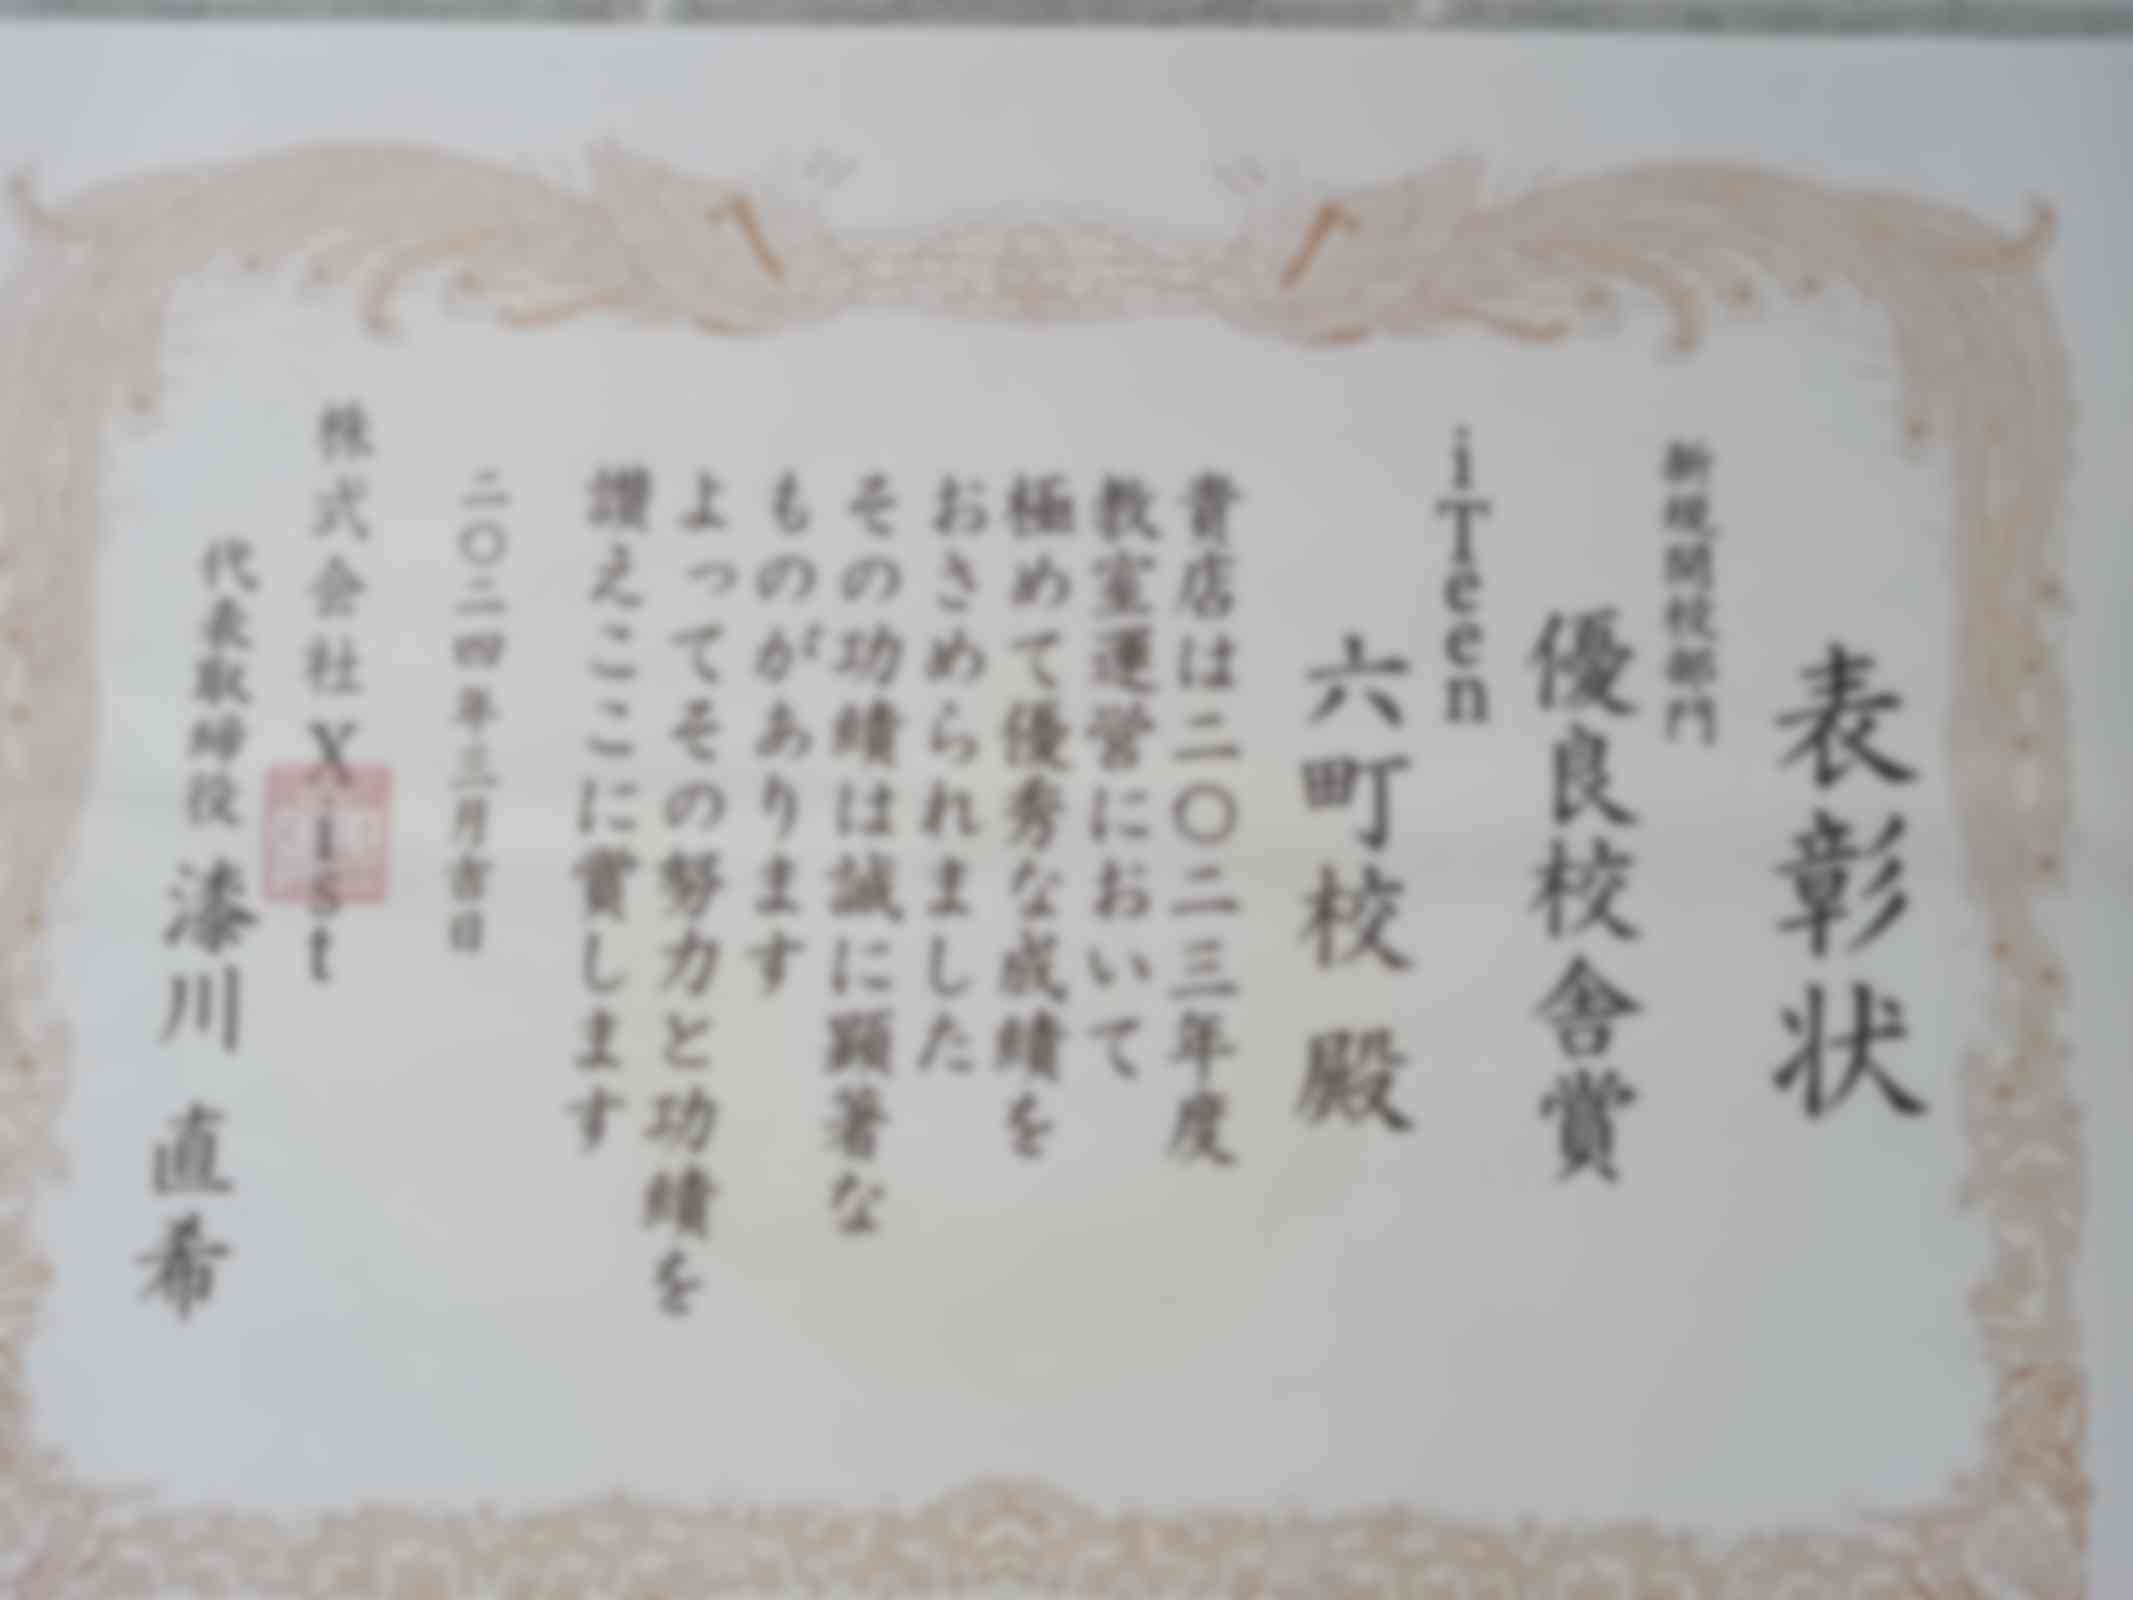 表彰状
新規開校部門
優良校舎賞
iTeen
六町校 殿
貴店は二〇二三年度
教室運営において
極めて優秀な成績を
おさめられました
その功績は誠に顕著な
ものがあります
よってその努力と功績を
讃えここに賞します
二〇二四年三月吉日
株式会社Xist
代表取締役 漆川 直希